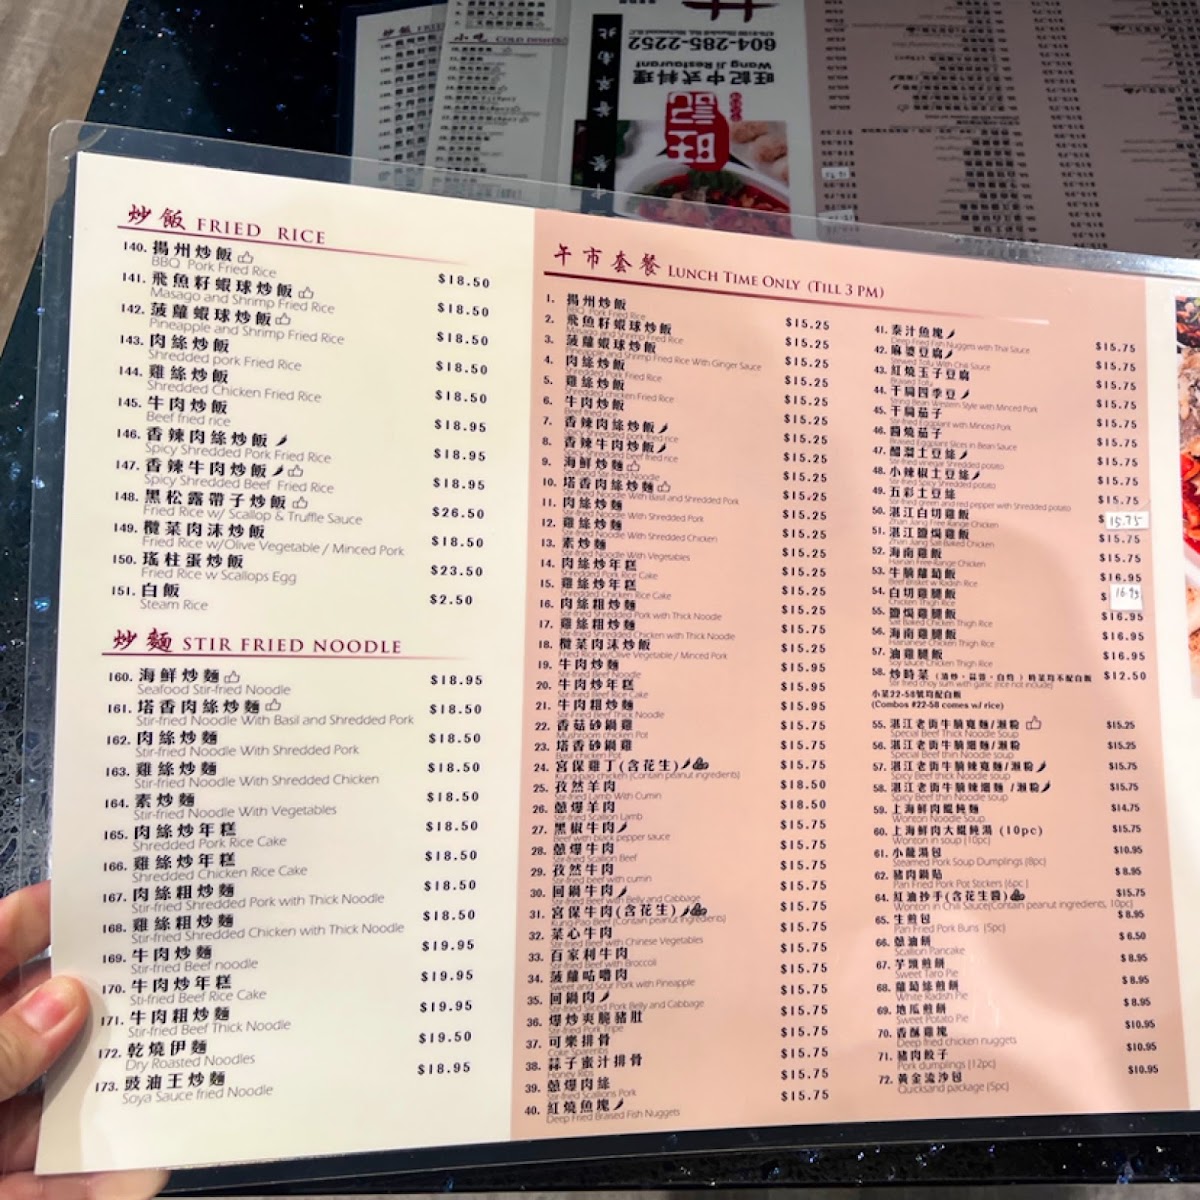 604-285-2252
Wang Ji Restaurant
旺記中式料理
旺記
炒飯 FRIED RICE
140. 揚州炒飯 $18.50
BBQ Pork Fried Rice
141. 飛魚籽蝦球炒飯 $18.50
Masago and Shrimp Fried Rice
142. 菠蘿蝦球炒飯 $18.50
Pineapple and Shrimp Fried Rice
143. 肉絲炒飯 $18.50
Shredded pork Fried Rice
144. 雞絲炒飯 $18.50
Shredded Chicken Fried Rice
145. 牛肉炒飯 $18.95
Beef fried rice
146. 香辣肉絲炒飯 $18.95
Spicy Shredded Pork Fried Rice
147. 香辣牛肉炒飯 $18.95
Spicy Shredded Beef Fried Rice
148. 黑松露帶子炒飯 $26.50
Fried Rice w/ Scallop & Truffle Sauce
149. 欖菜肉沫炒飯 $18.50
Fried Rice w/Olive Vegetable / Minced Pork
150. 瑤柱蛋炒飯 $23.50
Fried Rice w Scallops Egg
151. 白飯 $2.50
Steam Rice
炒麵 STIR FRIED NOODLE
160. 海鮮炒麵 $18.95
Seafood Stir-fried Noodle
161. 塔香肉絲炒麵 $18.50
Stir-fried Noodle With Basil and Shredded Pork
162. 肉絲炒麵 $18.50
Stir-fried Noodle With Shredded Pork
163. 雞絲炒麵 $18.50
Stir-fried Noodle With Shredded Chicken
164. 素炒麵 $18.50
Stir-fried Noodle With Vegetables
165. 肉絲炒年糕 $18.50
Shredded Pork Rice Cake
166. 雞絲炒年糕 $18.50
Shredded Chicken Rice Cake
167. 肉絲粗炒麵 $18.50
Stir-fried Shredded Pork with Thick Noodle
168. 雞絲粗炒麵 $18.50
Stir-fried Shredded Chicken with Thick Noodle
169. 牛肉炒麵 $19.95
Stir-fried Beef noodle
170. 牛肉炒年糕 $19.95
Sti-fried Beef Rice Cake
171. 牛肉粗炒麵 $19.95
Stir-fried Beef Thick Noodle
172. 乾燒伊麵 $19.50
Dry Roasted Noodles
173. 豉油王炒麵 $18.95
Soya Sauce fried Noodle
午市套餐 LUNCH TIME ONLY (TILL 3 PM)
1. 揚州炒飯 $15.25
BBQ Pork Fried Rice
2. 飛魚籽蝦球炒飯 $15.25
Masago and Shrimp Fried Rice
3. 菠蘿蝦球炒飯 $15.25
Pineapple and Shrimp Fried Rice With Ginger Sauce
4. 肉絲炒飯 $15.25
Shredded Pork Fried Rice
5. 雞絲炒飯 $15.25
Shredded chicken Fried Rice
6. 牛肉炒飯 $15.25
Beef fried rice
7. 香辣肉絲炒飯 $15.25
Spicy Shredded pork fried rice
8. 香辣牛肉炒飯 $15.25
Spicy Shredded beef fried rice
9. 海鮮炒麵 $15.25
Seafood Stir-fried Noodle
10. 塔香肉絲炒麵 $15.25
Stir-fried Noodle With Basil and Shredded Pork
11. 肉絲炒麵 $15.25
Stir-fried Noodle With Shredded Pork
12. 雞絲炒麵 $15.25
Stir-fried Noodle With Shredded Chicken
13. 素炒麵 $15.25
Stir-fried Noodle With Vegetables
14. 肉絲炒年糕 $15.25
Shredded Pork Rice Cake
15. 雞絲炒年糕 $15.25
Shredded Chicken Rice Cake
16. 肉絲粗炒麵 $15.25
Stir-fried Shredded Pork with Thick Noodle
17. 雞絲粗炒麵 $15.75
Stir-fried Shredded Chicken with Thick Noodle
18. 欖菜肉沫炒飯 $15.75
Fried Rice w/Olive Vegetable / Minced Pork
19. 牛肉炒麵 $15.95
Stir-fried Beef Noodle
20. 牛肉炒年糕 $15.95
Stir-fried Beef Rice Cake
21. 牛肉粗炒麵 $15.95
Stir-Fried Beef Thick Noodle
22. 香菇砂鍋雞 $15.75
Mushroom chicken Pot
23. 塔香砂鍋雞 $15.75
Basil chicken Pot
24. 宮保雞丁(含花生) $15.75
Kung-pao chicken (Contain peanut ingredients)
25. 孜然羊肉 $18.50
Stir-fried Lamb With Cumin
26. 蔥爆羊肉 $18.50
Stir-fried Scallion Lamb
27. 黑椒牛肉 $15.75
Beef with black pepper sauce
28. 蔥爆牛肉 $15.75
Stir-fried Scallion Beef
29. 孜然牛肉 $15.75
Stir-fried beef with cumin
30. 回鍋牛肉 $15.75
Stir-fried Beef with Belly and Cabbage
31. 宮保牛肉(含花生) $15.75
Kung-pao Beef (Contain peanut ingredients)
32. 菜心牛肉 $15.75
Stir-fried Beef with Chinese Vegetables
33. 百家利牛肉 $15.75
Stir-fried Beef with Broccoli
34. 菠蘿咕嚕肉 $15.75
Sweet and Sour Pork with Pineapple
35. 回鍋肉 $15.75
Stir-fried Sliced Pork Belly and Cabbage
36. 爆炒爽脆豬肚 $15.75
Stir-fried Pork Tripe
37. 可樂排骨 $15.75
Coke Spareribs
38. 蒜子蜜汁排骨 $15.75
Honey Ribs
39. 蔥爆肉絲 $15.75
Stir-fried Scallions Pork
40. 紅燒魚塊 $15.75
Deep Fried Braised Fish Nuggets
41. 泰汁魚塊 $15.75
Deep Fried Fish Nuggets with Thai Sauce
42. 麻婆豆腐 $15.75
Stewed Tofu With Chili Sauce
43. 紅燒玉子豆腐 $15.75
Braised Tofu
44. 干煸四季豆 $15.75
String Bean Western Style with Minced Pork
45. 干煸茄子 $15.75
Stir-fried Eggplant with Minced Pork
46. 醬燒茄子 $15.75
Braised Eggplant Slices in Bean Sauce
47. 醋溜土豆絲 $15.75
Stir-fried Vinegar Shredded potato
48. 小辣椒土豆絲 $15.75
Stir-fried Spicy Shredded potato
49. 五彩土豆絲 $15.75
Stir-fried green and red pepper with Shredded potato
50. 湛江白切雞飯 $15.75
Zhan Jiang Free Range Chicken
51. 湛江鹽焗雞飯 $15.75
Zhan Jiang Salt Baked Chicken
52. 海南雞飯 $15.75
Hainan Free-Range Chicken
53. 牛腩蘿蔔飯 $16.95
Beef Brisket w Radish Rice
54. 白切雞腿飯 $16.95
Chicken Thigh Rice
55. 鹽焗雞腿飯 $16.95
Salt Baked Chicken Thigh Rice
56. 海南雞腿飯 $16.95
Hainanese Chicken Thigh Rice
57. 油雞腿飯 $16.95
Soy sauce Chicken Thigh Rice
58. 炒時菜 (清炒、蒜蓉、白灼) 時菜均不配白飯 $12.50
Stir fried choy sum with garlic (rice not include)
小菜22-58號均配白飯
(Combos #22-58 comes w/ rice)
55. 湛江老街牛腩寬麵/瀨粉 $15.25
Special Beef Thick Noodle Soup
56. 湛江老街牛腩細麵/瀨粉 $15.25
Special Beef thin Noodle soup
57. 湛江老街牛腩辣寬麵/瀨粉 $15.75
Spicy Beef thick noodle soup
58. 湛江老街牛腩辣細麵/瀨粉 $15.75
Spicy Beef thin noodle soup
59. 上海鮮肉餛飩麵 $14.75
Wonton Noodle Soup
60. 上海鮮肉大餛飩湯 (10pc) $15.75
Wonton in soup (10pc)
61. 小龍湯包 $10.95
Steamed Pork Soup Dumplings (8pc)
62. 豬肉鍋貼 $8.95
Pan Fried Pork Pot Stickers (6pc)
64. 紅油抄手(含花生醬) $15.75
Wonton in Chili Sauce(Contain peanut ingredients, 10pc)
65. 生煎包 $8.95
Pan Fried Pork Buns (5pc)
66. 蔥油餅 $6.50
Scallion Pancake
67. 芋頭煎餅 $8.95
Sweet Taro Pie
68. 蘿蔔絲煎餅 $8.95
White Radish Pie
69. 地瓜煎餅 $8.95
Sweet Potato Pie
70. 香酥雞塊 $10.95
Deep fried chicken nuggets
71. 豬肉餃子 $10.95
Pork dumplings (12pc)
72. 黃金流沙包 $10.95
Quicksand package (5pc)